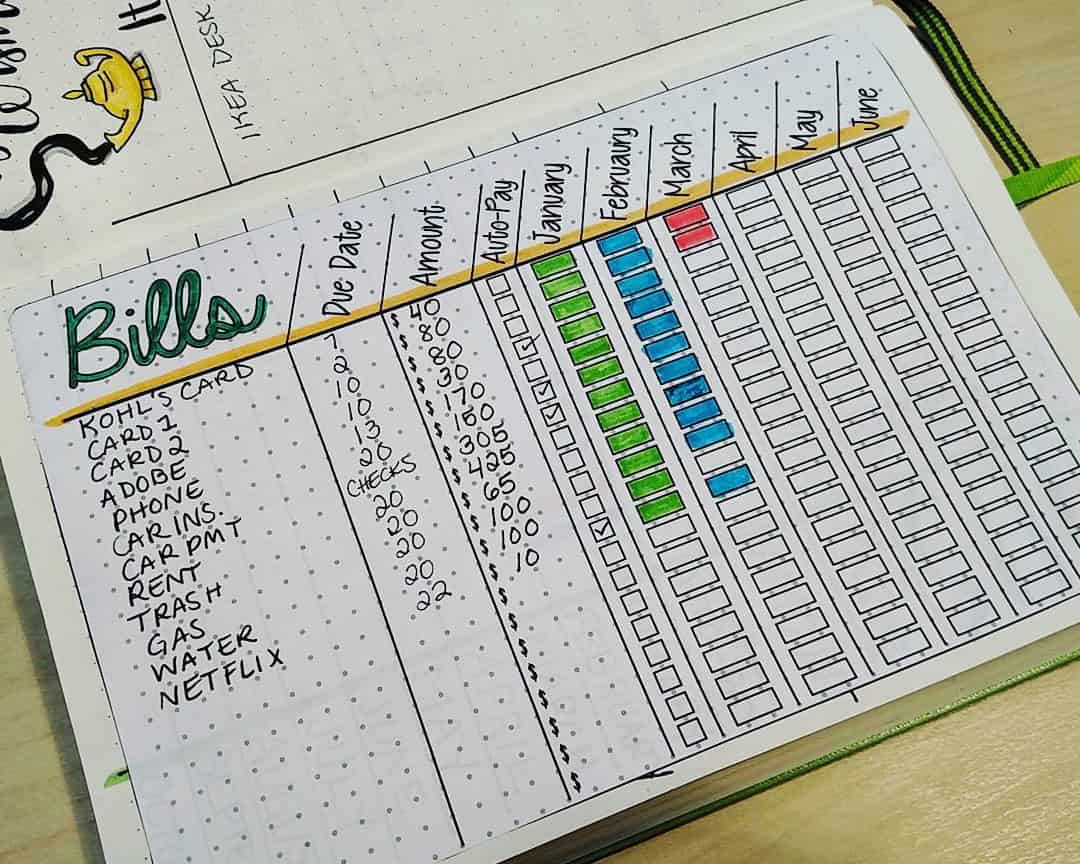 It
IKEA DESK
Bills Due Date Amount Auto-Pay January Februaury March April May June
KOHL'S CARD $ 40
CARD 1 2 $ 80
CARD 2 10 $ 80
ADOBE 10 $ 30
PHONE 13 $ 170
CAR INS. 20 $ 150
CAR PMT CHECKS $ 305
RENT 20 $ 425
TRASH 20 $ 65
GAS 20 $ 100
WATER 20 $ 100
NETFLIX 22 $ 10
$
$
$
$
$
$
$
$